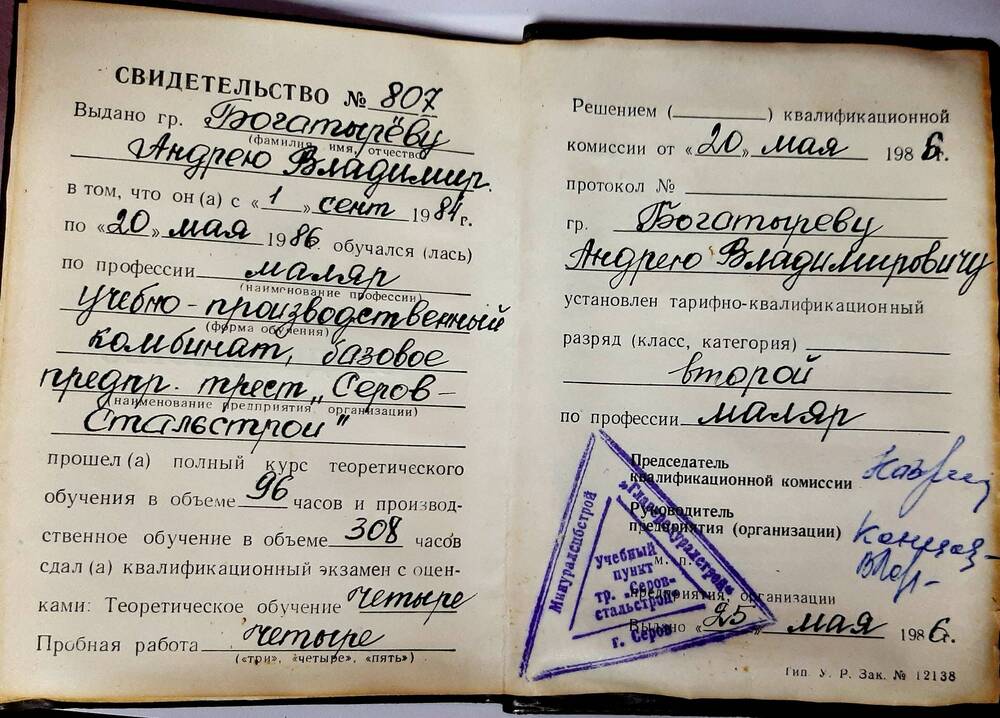 СВИДЕТЕЛЬСТВО № 807
Выдано гр. Богатырёву
(фамилия, имя, отчество)
Андрею Владимир.
в том, что он (а) с «1» сент 1984г.
по «20» мая 1986. обучался (лась)
по профессии маляр
(наименование профессии)
учебно-производственный
(форма обучения)
комбинат, базовое
предпр. трест „Серов-
(наименование предприятия организации)
Стальстрой"
прошел (а) полный курс теоретического
обучения в объеме 96 часов и производ-
ственное обучение в объеме 308 часов
сдал (а) квалификационный экзамен с оцен-
ками: Теоретическое обучение четыре
Пробная работа четыре
(«три», «четыре», «пять»)
Решением (________) квалификационной
комиссии от «20» мая 1986г.
протокол №
гр. Богатыреву
Андрею Владимировичу
установлен тарифно-квалификационный
разряд (класс, категория)
второй
по профессии маляр
Председатель
квалификационной комиссии
Руководитель
предприятия (организации)
м. п.
предприятия, организации
Выдано «25» мая 1986.
Минуралсибстрой
Учебный
пункт
тр. „Серов-
стальстрой"
г. Серов
Тип. У. Р. Зак. № 12138